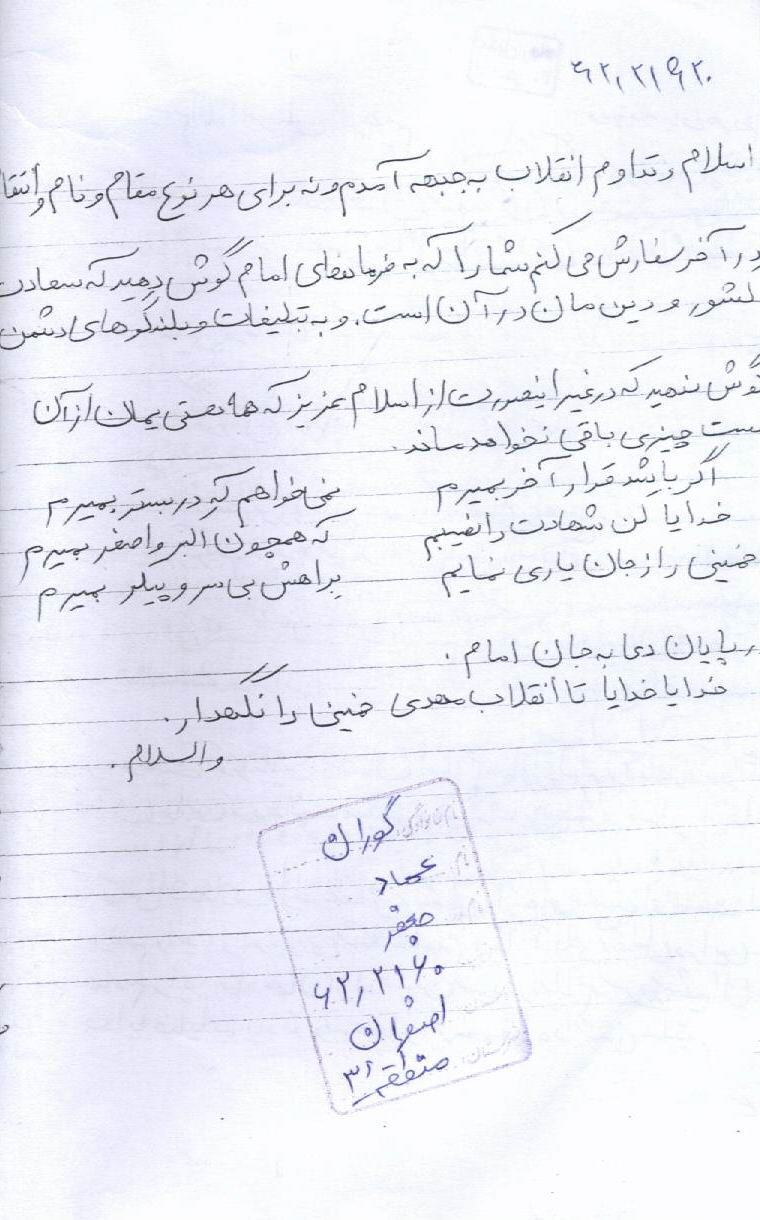 ۶۲,۲۱۶۲۰
اسلام و تداوم انقلاب به جبهه آمدم و نه برای هر نوع مقام و نام و انتقا
در آخر سفارش می کنم شما را که به فرمانهای امام گوش دهید که سعادت
کشور و دین مان در آن است. و به تبلیغات و بلندگوهای دشمن
گوش ندهید که در غیر اینصورت از اسلام عزیز که همه هستی یمان از آن
ست چیزی باقی نخواهد ماند.
اگر باشد قرار آخر بمیرم نمی خواهم که در بستر بمیرم
خدایا کن شهادت را نصیبم که همچون اکبر و اصغر بمیرم
خمینی را ز جان یاری نمایم براهش بی سر و پیکر بمیرم
در پایان دعا به جان امام.
خدایا خدایا تا انقلاب مهدی خمینی را نگهدار.
والسلام.
نام خانوادگی: گوران
نام عماد
جعفر
۶۲,۲۱۶۰
اصفهان
منطقه ۳